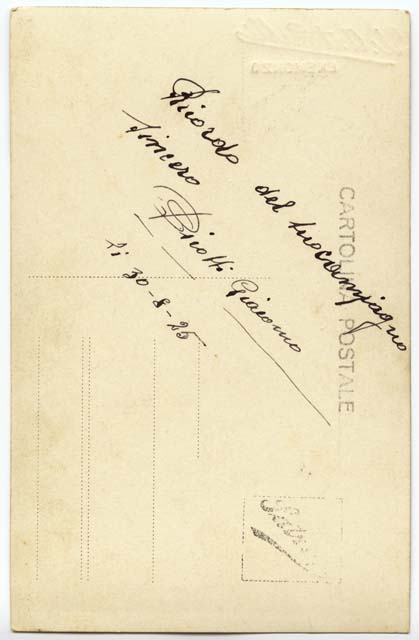 Ricordo del tuo compagno
sincero
Giacomo
li 30-8-25
CARTOLINA POSTALE